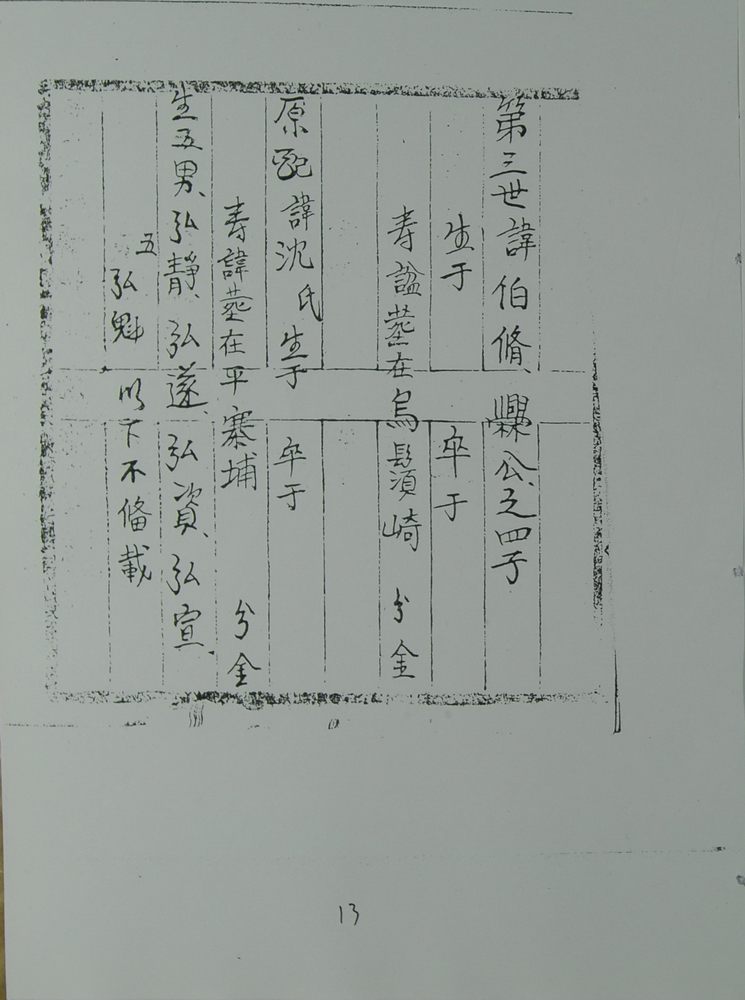 第三世諱伯脩、爨公之四子
生于 卒于
寿諡葬在烏鬚崎 分金
原配諱沈氏生于 卒于
寿諱葬在平寨埔 分金
生五男、弘靜、弘遂、弘資、弘宣、
五弘魁 以下不俻載
13